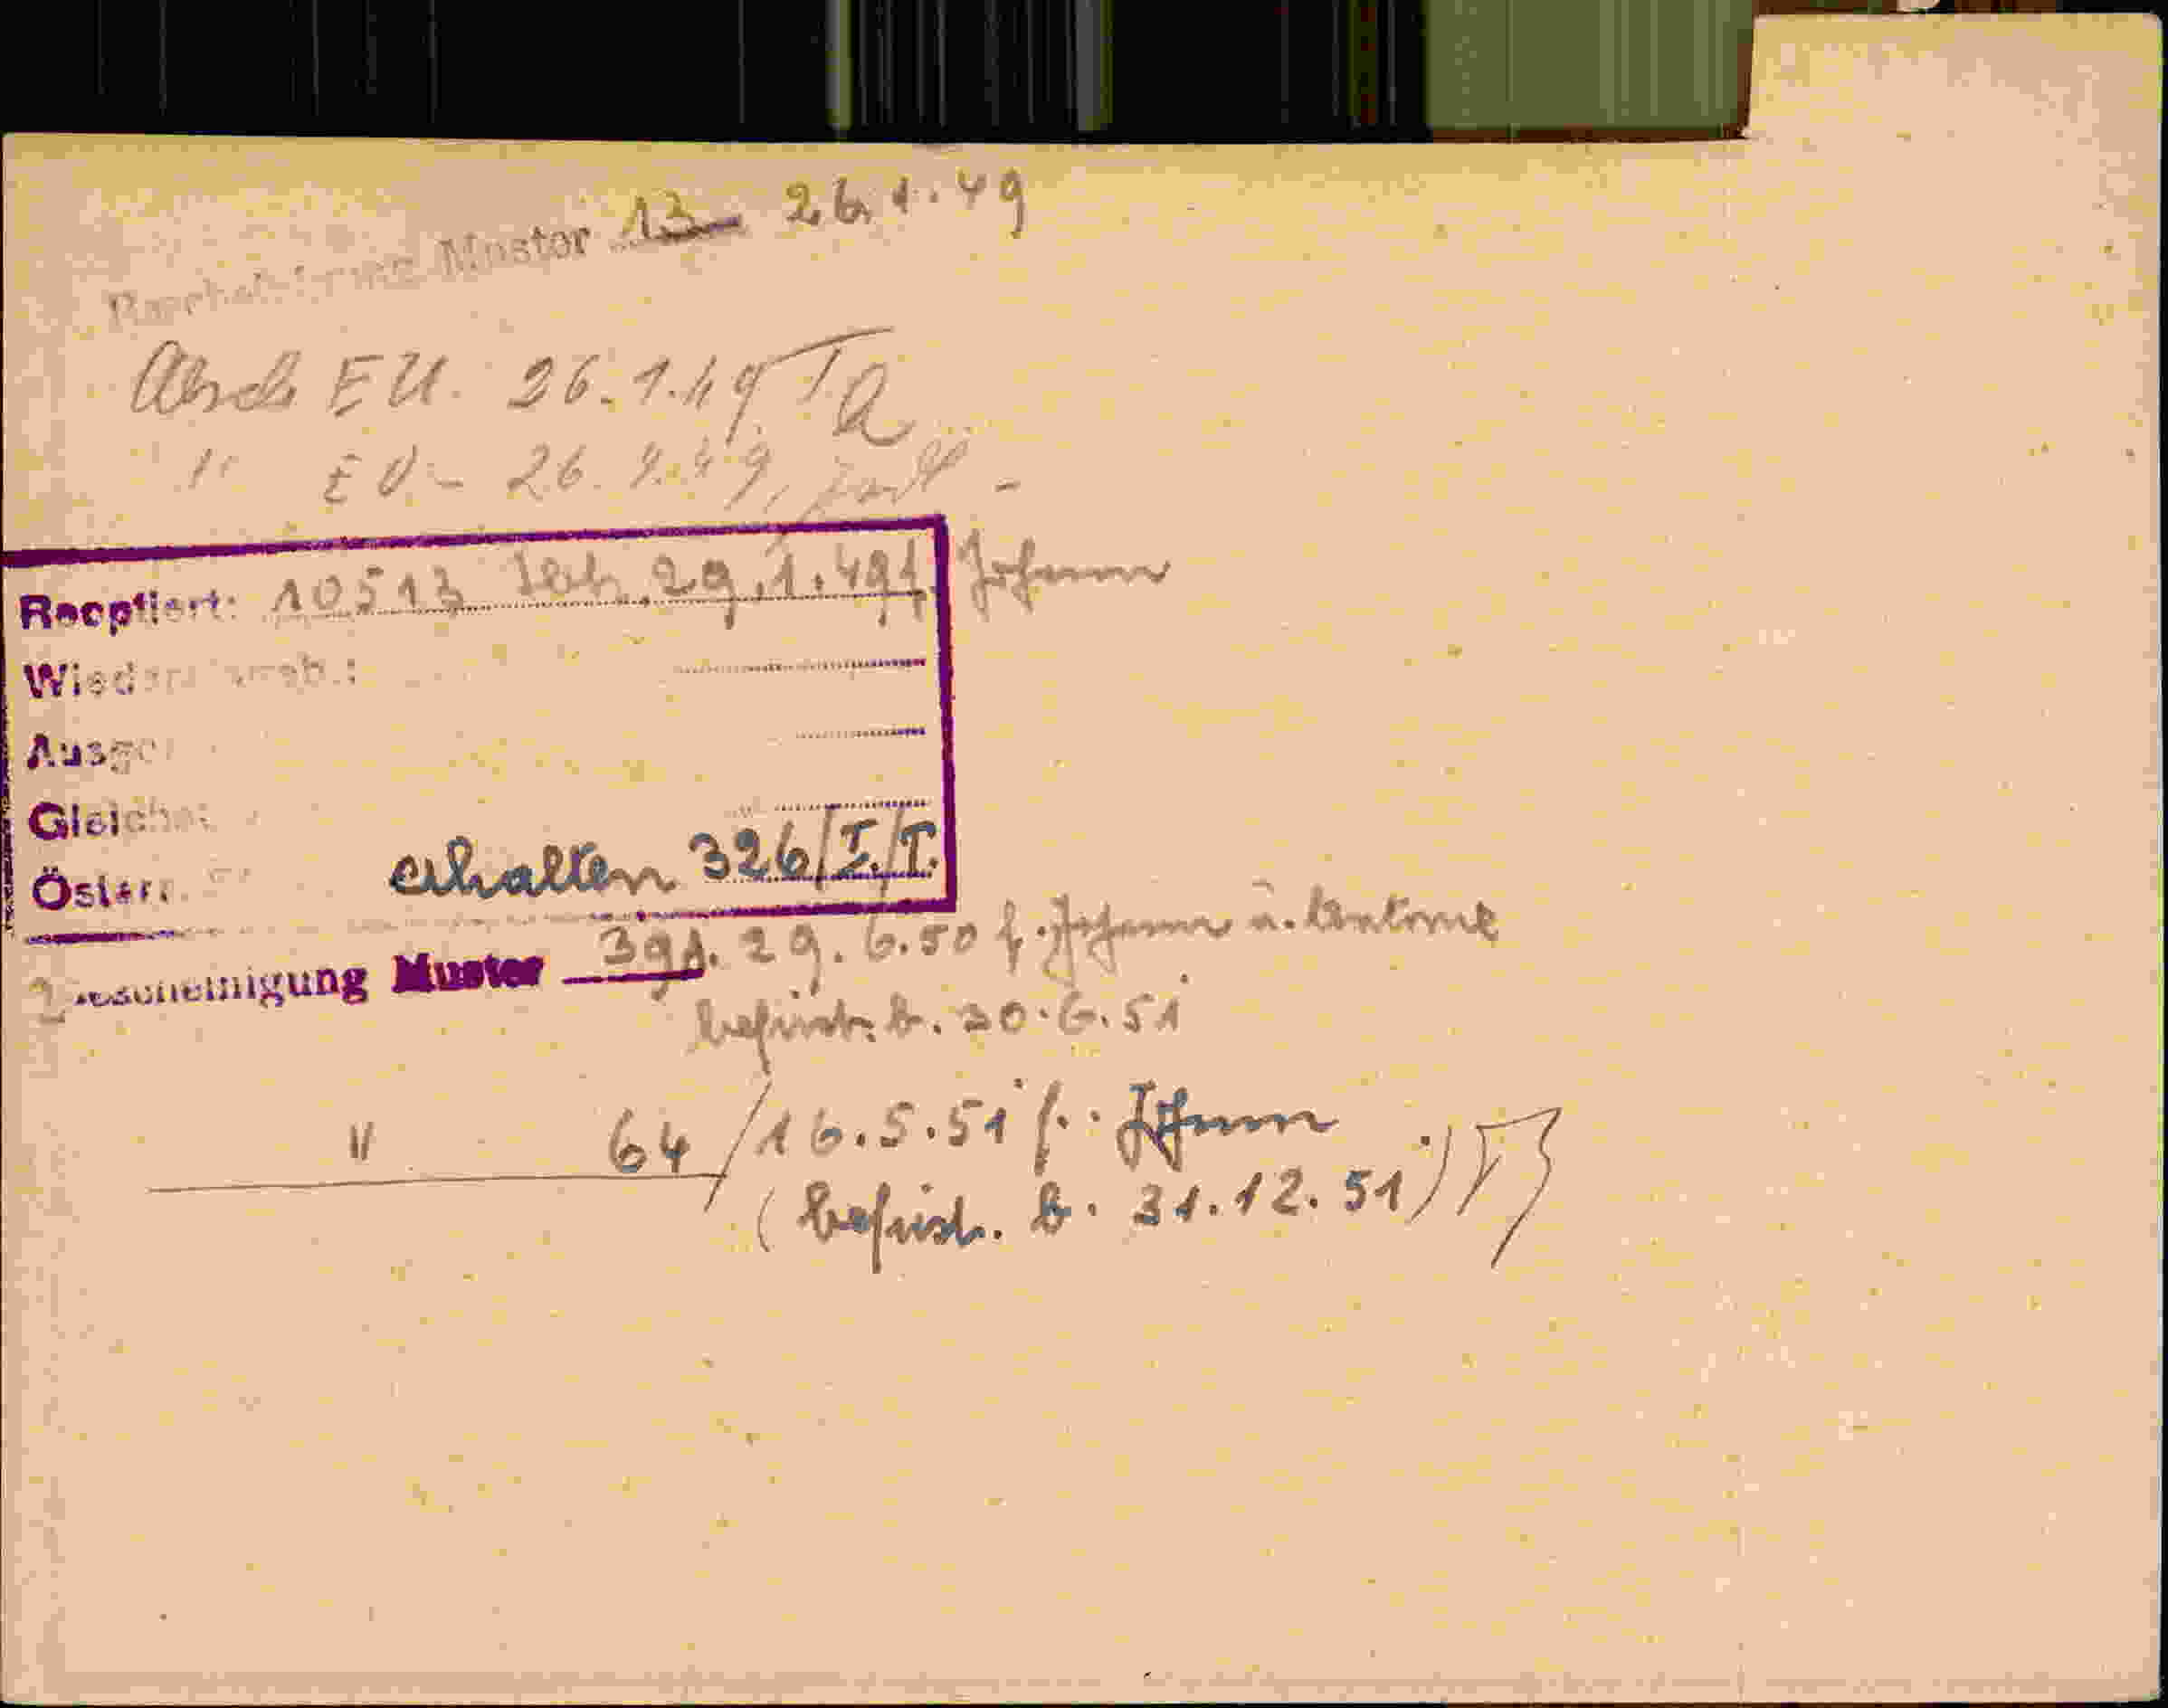 Bescheinigung Muster 13 26.1.49
Absch EU. 26.1.49
" EU - 26.9.49,
Reoptiert: 10513 29.1.49 f. Johann
Wieder
Ausge
Gleich
Österr. erhalten 326/I./I.
2 Bescheinigung Muster 39A. 29.6.50 f. Johann u. Antonie
befrist. b. 30.6.51
" 64/16.5.51 f. Johann
(befrist. b. 31.12.51)